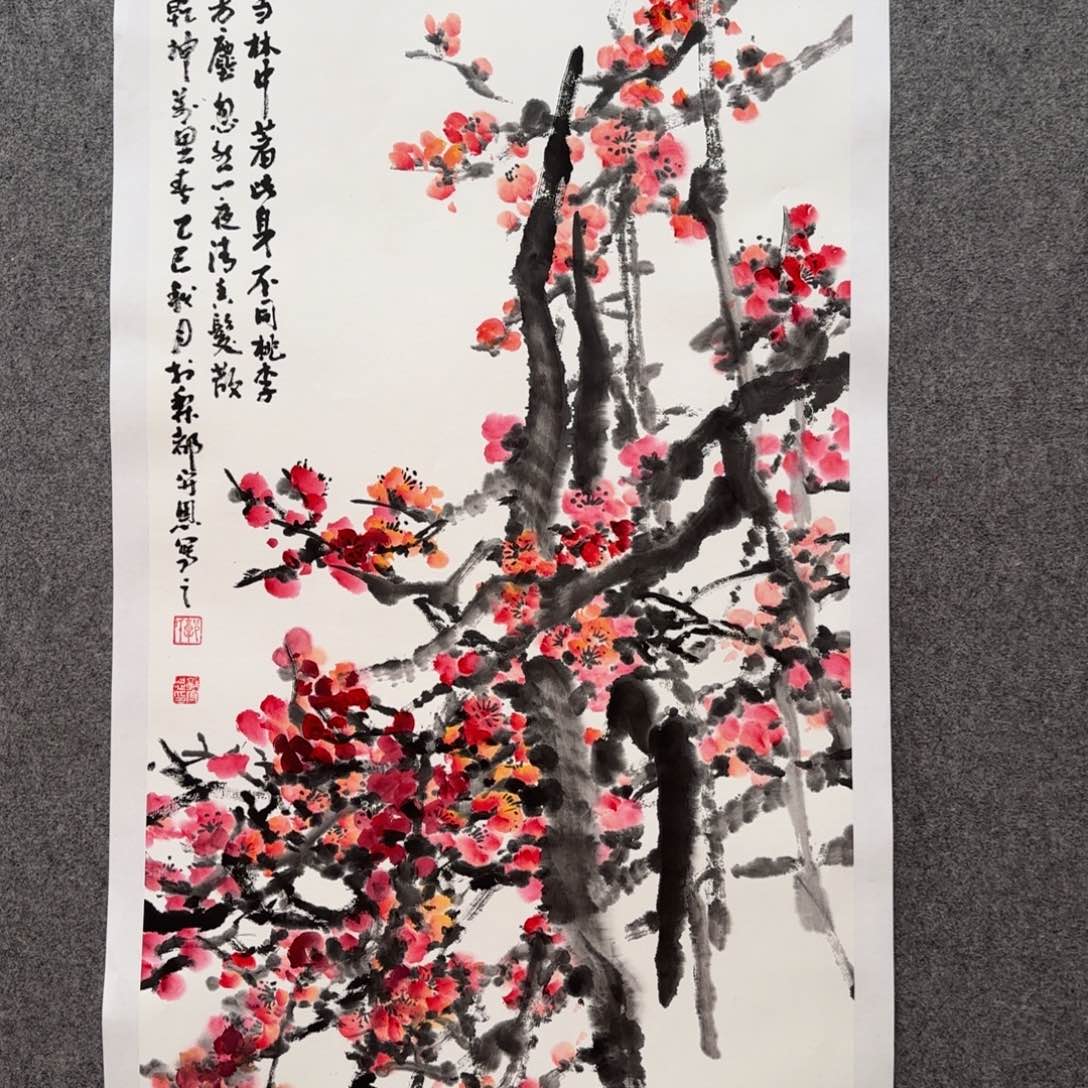 林中著此身不同桃李
芳塵忽然一夜清香髮散
乾坤萬里春乙巳秋月於梨都恩寫之